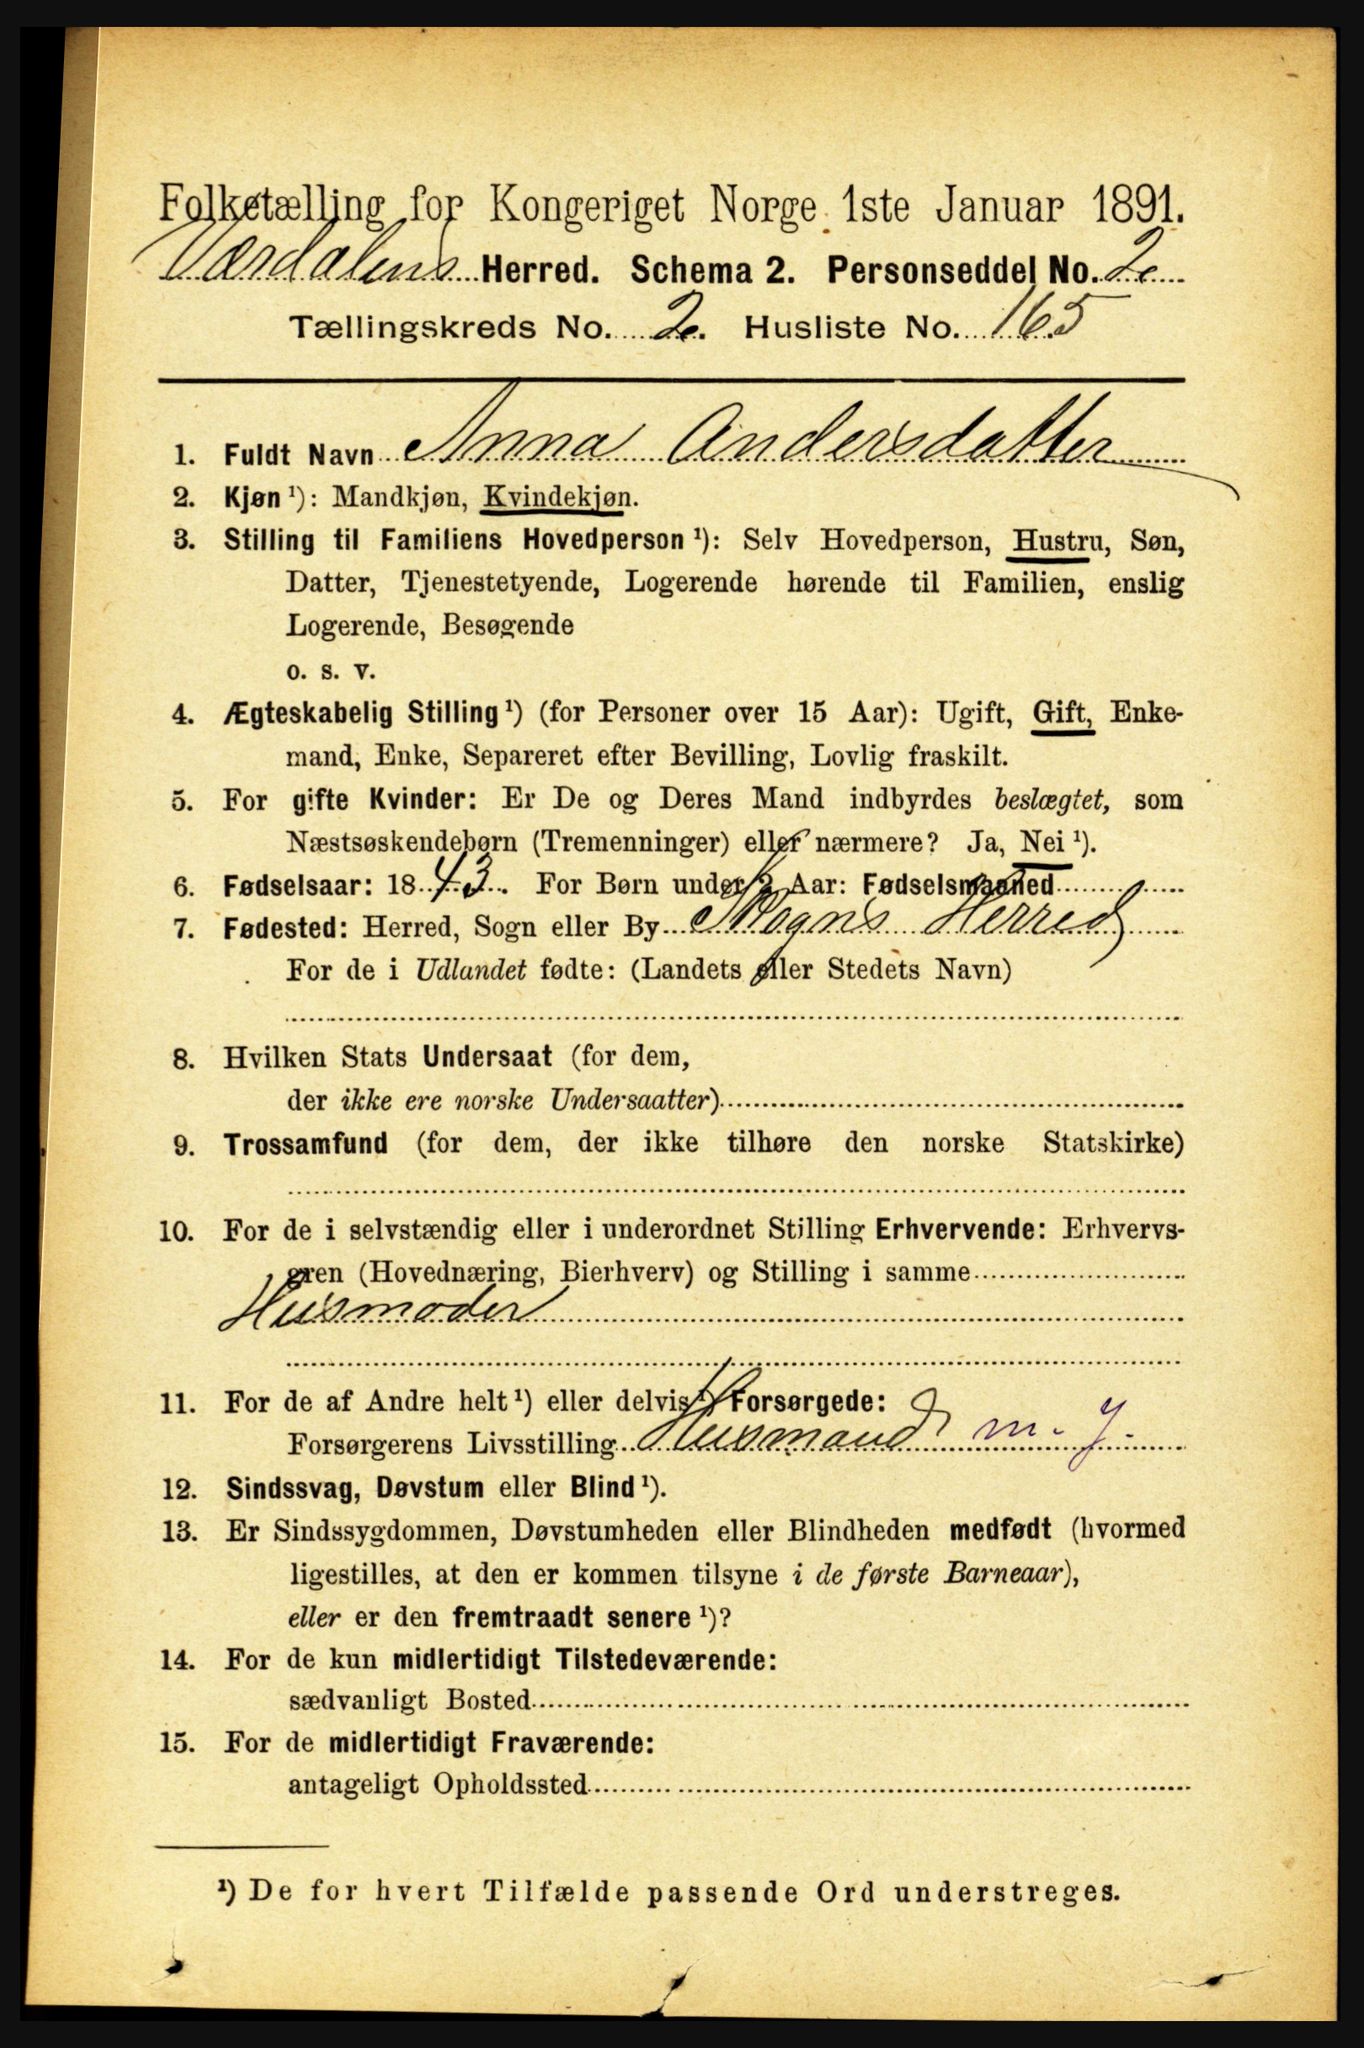 Folketælling for Kongeriget Norge 1ste Januar 1891.
Værdalens Herred. Schema 2. Personseddel No. 2
Tællingskreds No. 2. Husliste No. 165
1. Fuldt Navn Anna Andersdatter
2. Kjøn ¹): Mandkjøn, Kvindekjøn.
3. Stilling til Familiens Hovedperson ¹): Selv Hovedperson, Hustru, Søn,
Datter, Tjenestetyende, Logerende hørende til Familien, enslig
Logerende, Besøgende
o. s. v.
4. Ægteskabelig Stilling ¹) (for Personer over 15 Aar): Ugift, Gift, Enke-
mand, Enke, Separeret efter Bevilling, Lovlig fraskilt.
5. For gifte Kvinder: Er De og Deres Mand indbyrdes beslægtet, som
Næstsøskendebørn (Tremenninger) eller nærmere? Ja, Nei ¹).
6. Fødselsaar: 1843. For Børn under 2 Aar: Fødselsmaaned
7. Fødested: Herred, Sogn eller By Skogns Herred
For de i Udlandet fødte: (Landets eller Stedets Navn)
8. Hvilken Stats Undersaat (for dem,
der ikke ere norske Undersaatter)
9. Trossamfund (for dem, der ikke tilhøre den norske Statskirke)
10. For de i selvstændig eller i underordnet Stilling Erhvervende: Erhvervs-
gren (Hovednæring, Bierhverv) og Stilling i samme
Husmoder
11. For de af Andre helt ¹) eller delvis ¹) Forsørgede:
Forsørgerens Livsstilling Husmand m. J.
12. Sindssvag, Døvstum eller Blind ¹).
13. Er Sindssygdommen, Døvstumheden eller Blindheden medfødt (hvormed
ligestilles, at den er kommen tilsyne i de første Barneaar),
eller er den fremtraadt senere ¹)?
14. For de kun midlertidigt Tilstedeværende:
sædvanligt Bosted
15. For de midlertidigt Fraværende:
antageligt Opholdssted
¹) De for hvert Tilfælde passende Ord understreges.